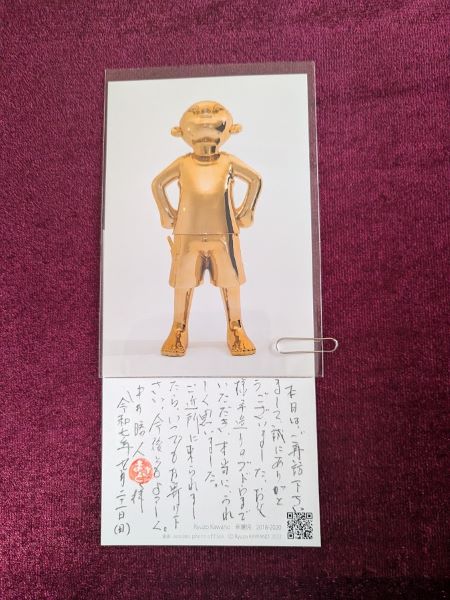 本日はご再訪下さい
まして誠にありがと
うございました。お父
様手造りのブドウまで
いただき本当にうれ
しく思いました。
ご近所に来られまし
たらいつでもお寄り下
さい。今後もよろしく。
中井 人 拝
令和七年 月二一(日)
Ryuzo Kawano 2018-2020
© Ryuzo KAWANO